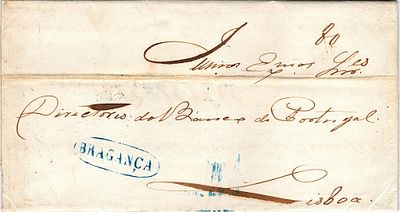 80
Illmos Exmos Snres
Directores do Banco de Portugal.
BRAGANÇA
Lisboa.